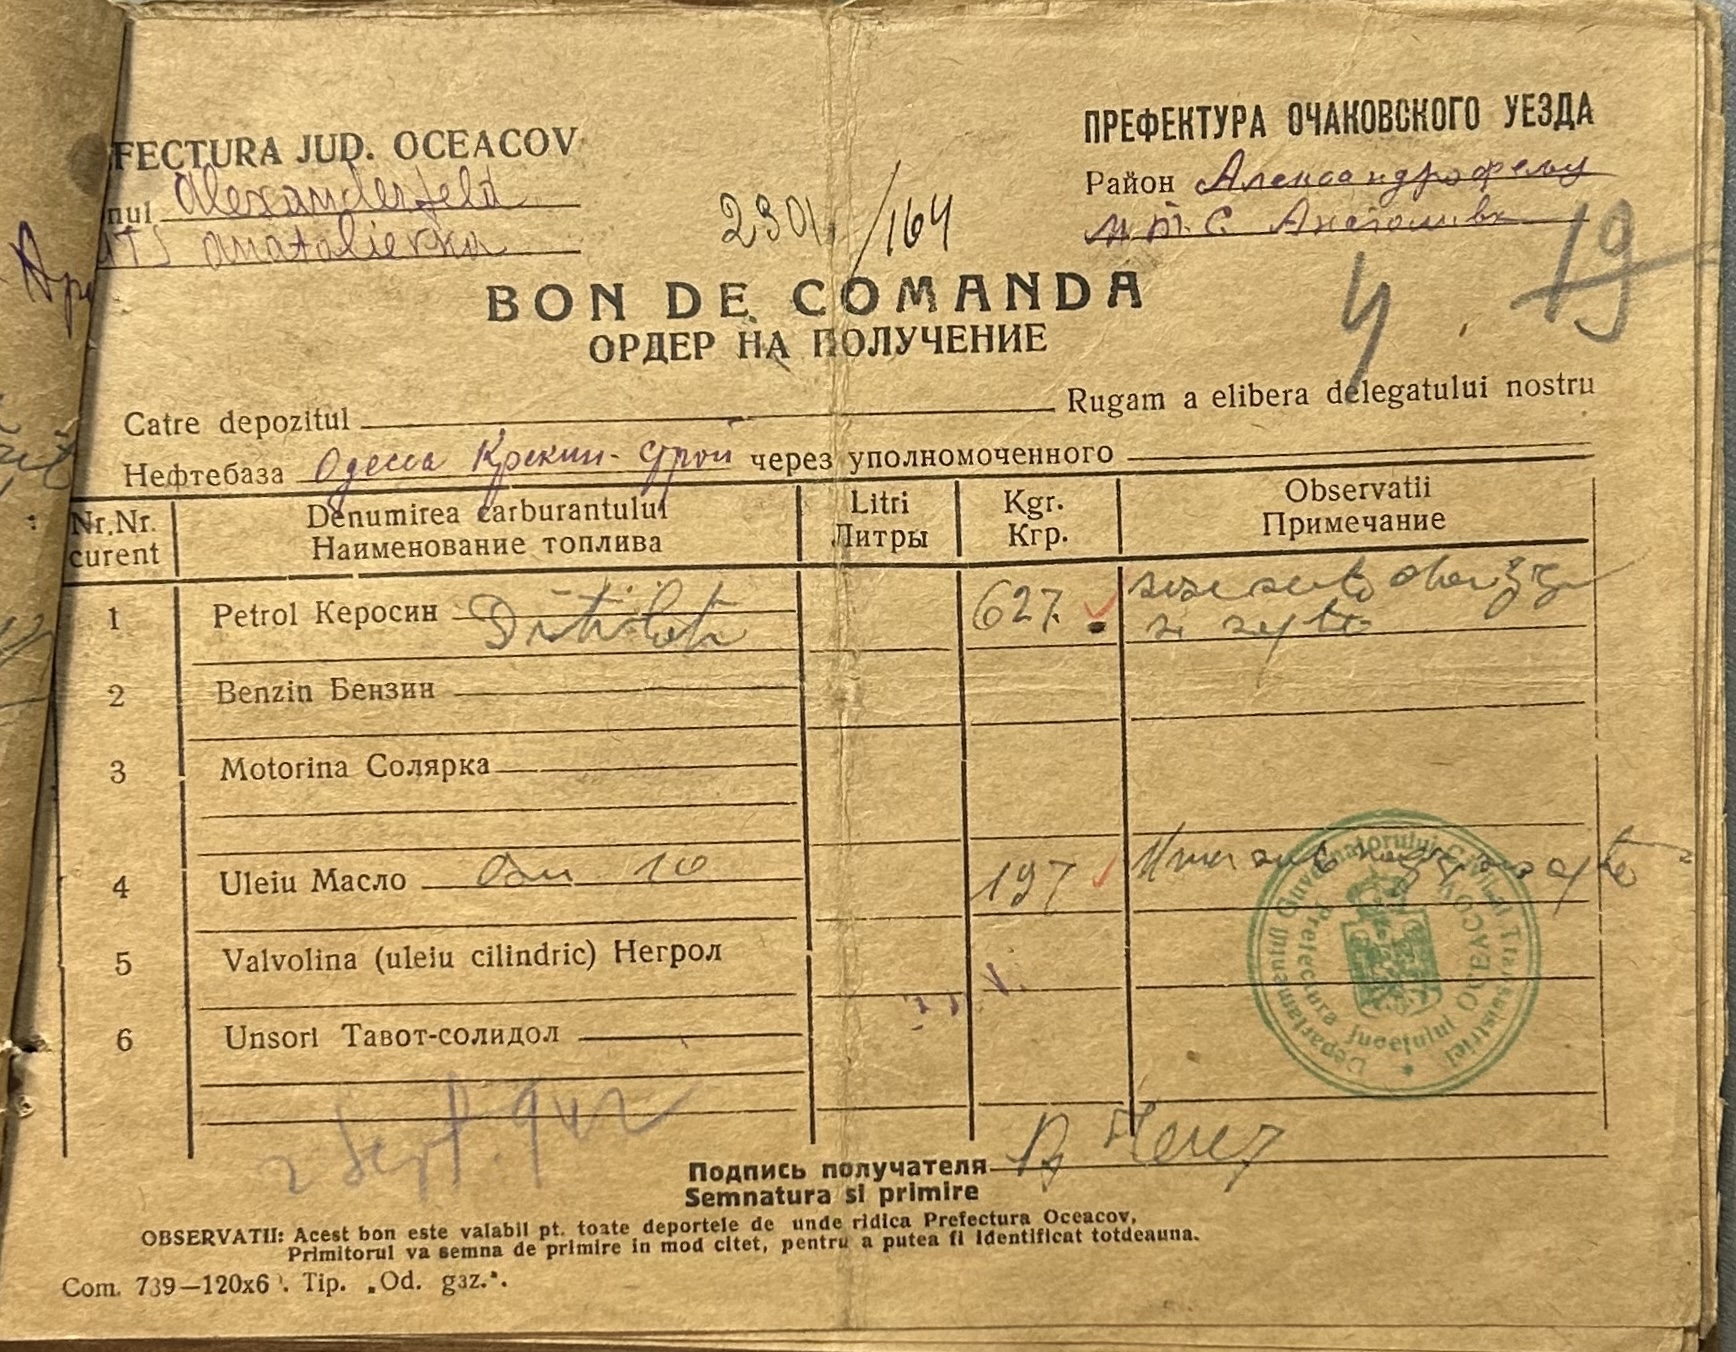 FECTURA JUD. OCEACOV
ПРЕФЕКТУРА ОЧАКОВСКОГО УЕЗДА
nul Alexanderfeld
Район Александрофельд
MTS Anatolievka
М.Т.С.
/164
4 19
BON DE COMANDA
ОРДЕР НА ПОЛУЧЕНИЕ
Catre depozitul Rugam a elibera delegatului nostru
Нефтебаза Одесса Крекин-Строй через уполномоченного
Nr.Nr. curent
Denumirea carburantului
Наименование топлива
Litri
Литры
Kgr.
Кгр.
Observatii
Примечание
1 Petrol Керосин 627 sase sute
si
2 Benzin Бензин
3 Motorina Солярка
4 Uleiu Масло 10 197
5 Valvolina (uleiu cilindric) Негрол
6 Unsori Тавот-солидол
Guvernatorului Civil al Transnistriei
Prefectura Judeţului OCEACOV
2 Sept. 942
Подпись получателя
Semnatura si primire
OBSERVATII: Acest bon este valabil pt. toate deportele de unde ridica Prefectura Oceacov,
Primitorul va semna de primire in mod citet, pentru a putea fi identificat totdeauna.
Com. 739—120x6 . Tip. „Od. gaz.".